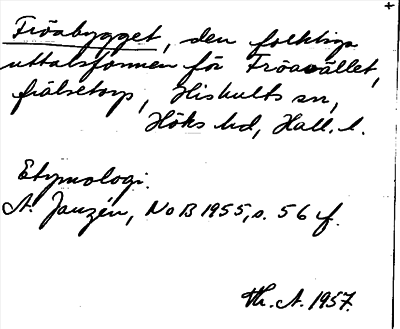 Fröabygget, den folkliga
uttalsformen för Fröavället,
frälsetorp, Hishults sn,
Höks hd, Hall. l.
Etymologi.
A. Janzén, NoB 1955, s. 56 f.
Th. A. 1957.